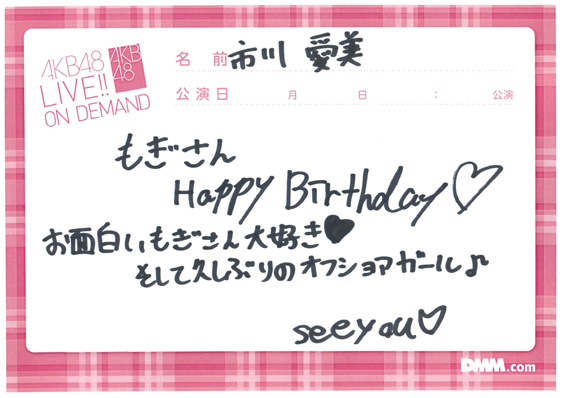 AKB48
LIVE!!
ON DEMAND
AKB
48
名 前 市川 愛美
公演日 月 日 : 公演
もぎさん
Happy Birthday♡
お面白いもぎさん大好き♥
そして久しぶりのオフショアガール♪
see you♡
DMM.com